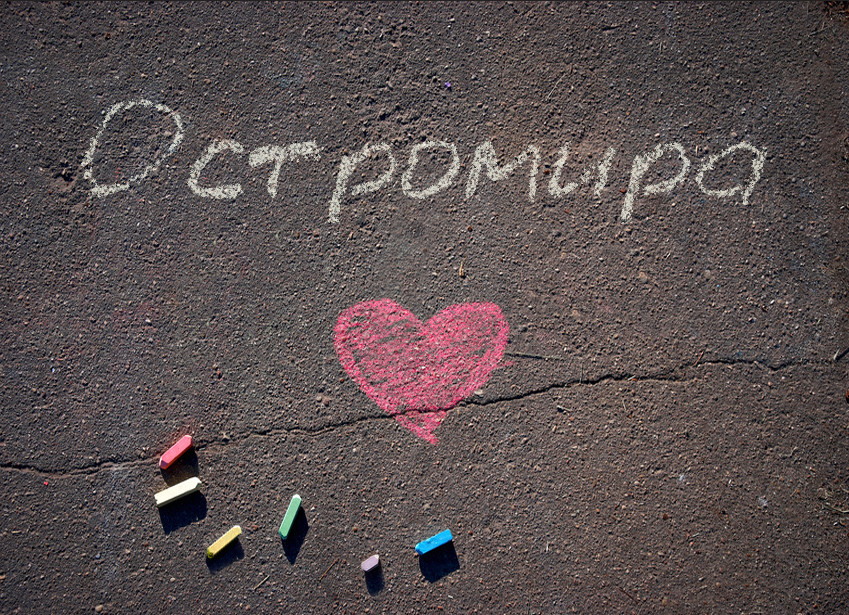 Остромира